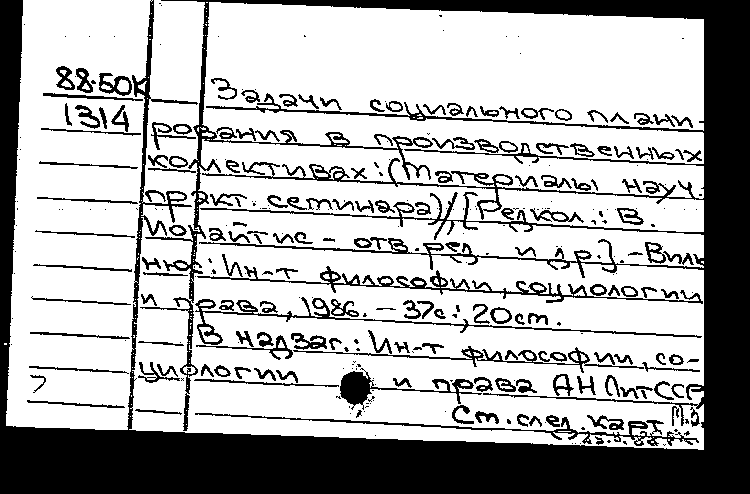 88.50К
1314
Задачи социального плани-
рования в производственных
коллективах: (Материалы науч.-
практ. семинара) / [Редкол.: В.
Ионайтис - отв. ред. и др.]. - Виль
нюс: Ин-т философии, социологии
и права, 1986. - 37с.; 20см.
В надзаг.: Ин-т философии, со-
циологии и права АН ЛитССР,
См. след. карт.